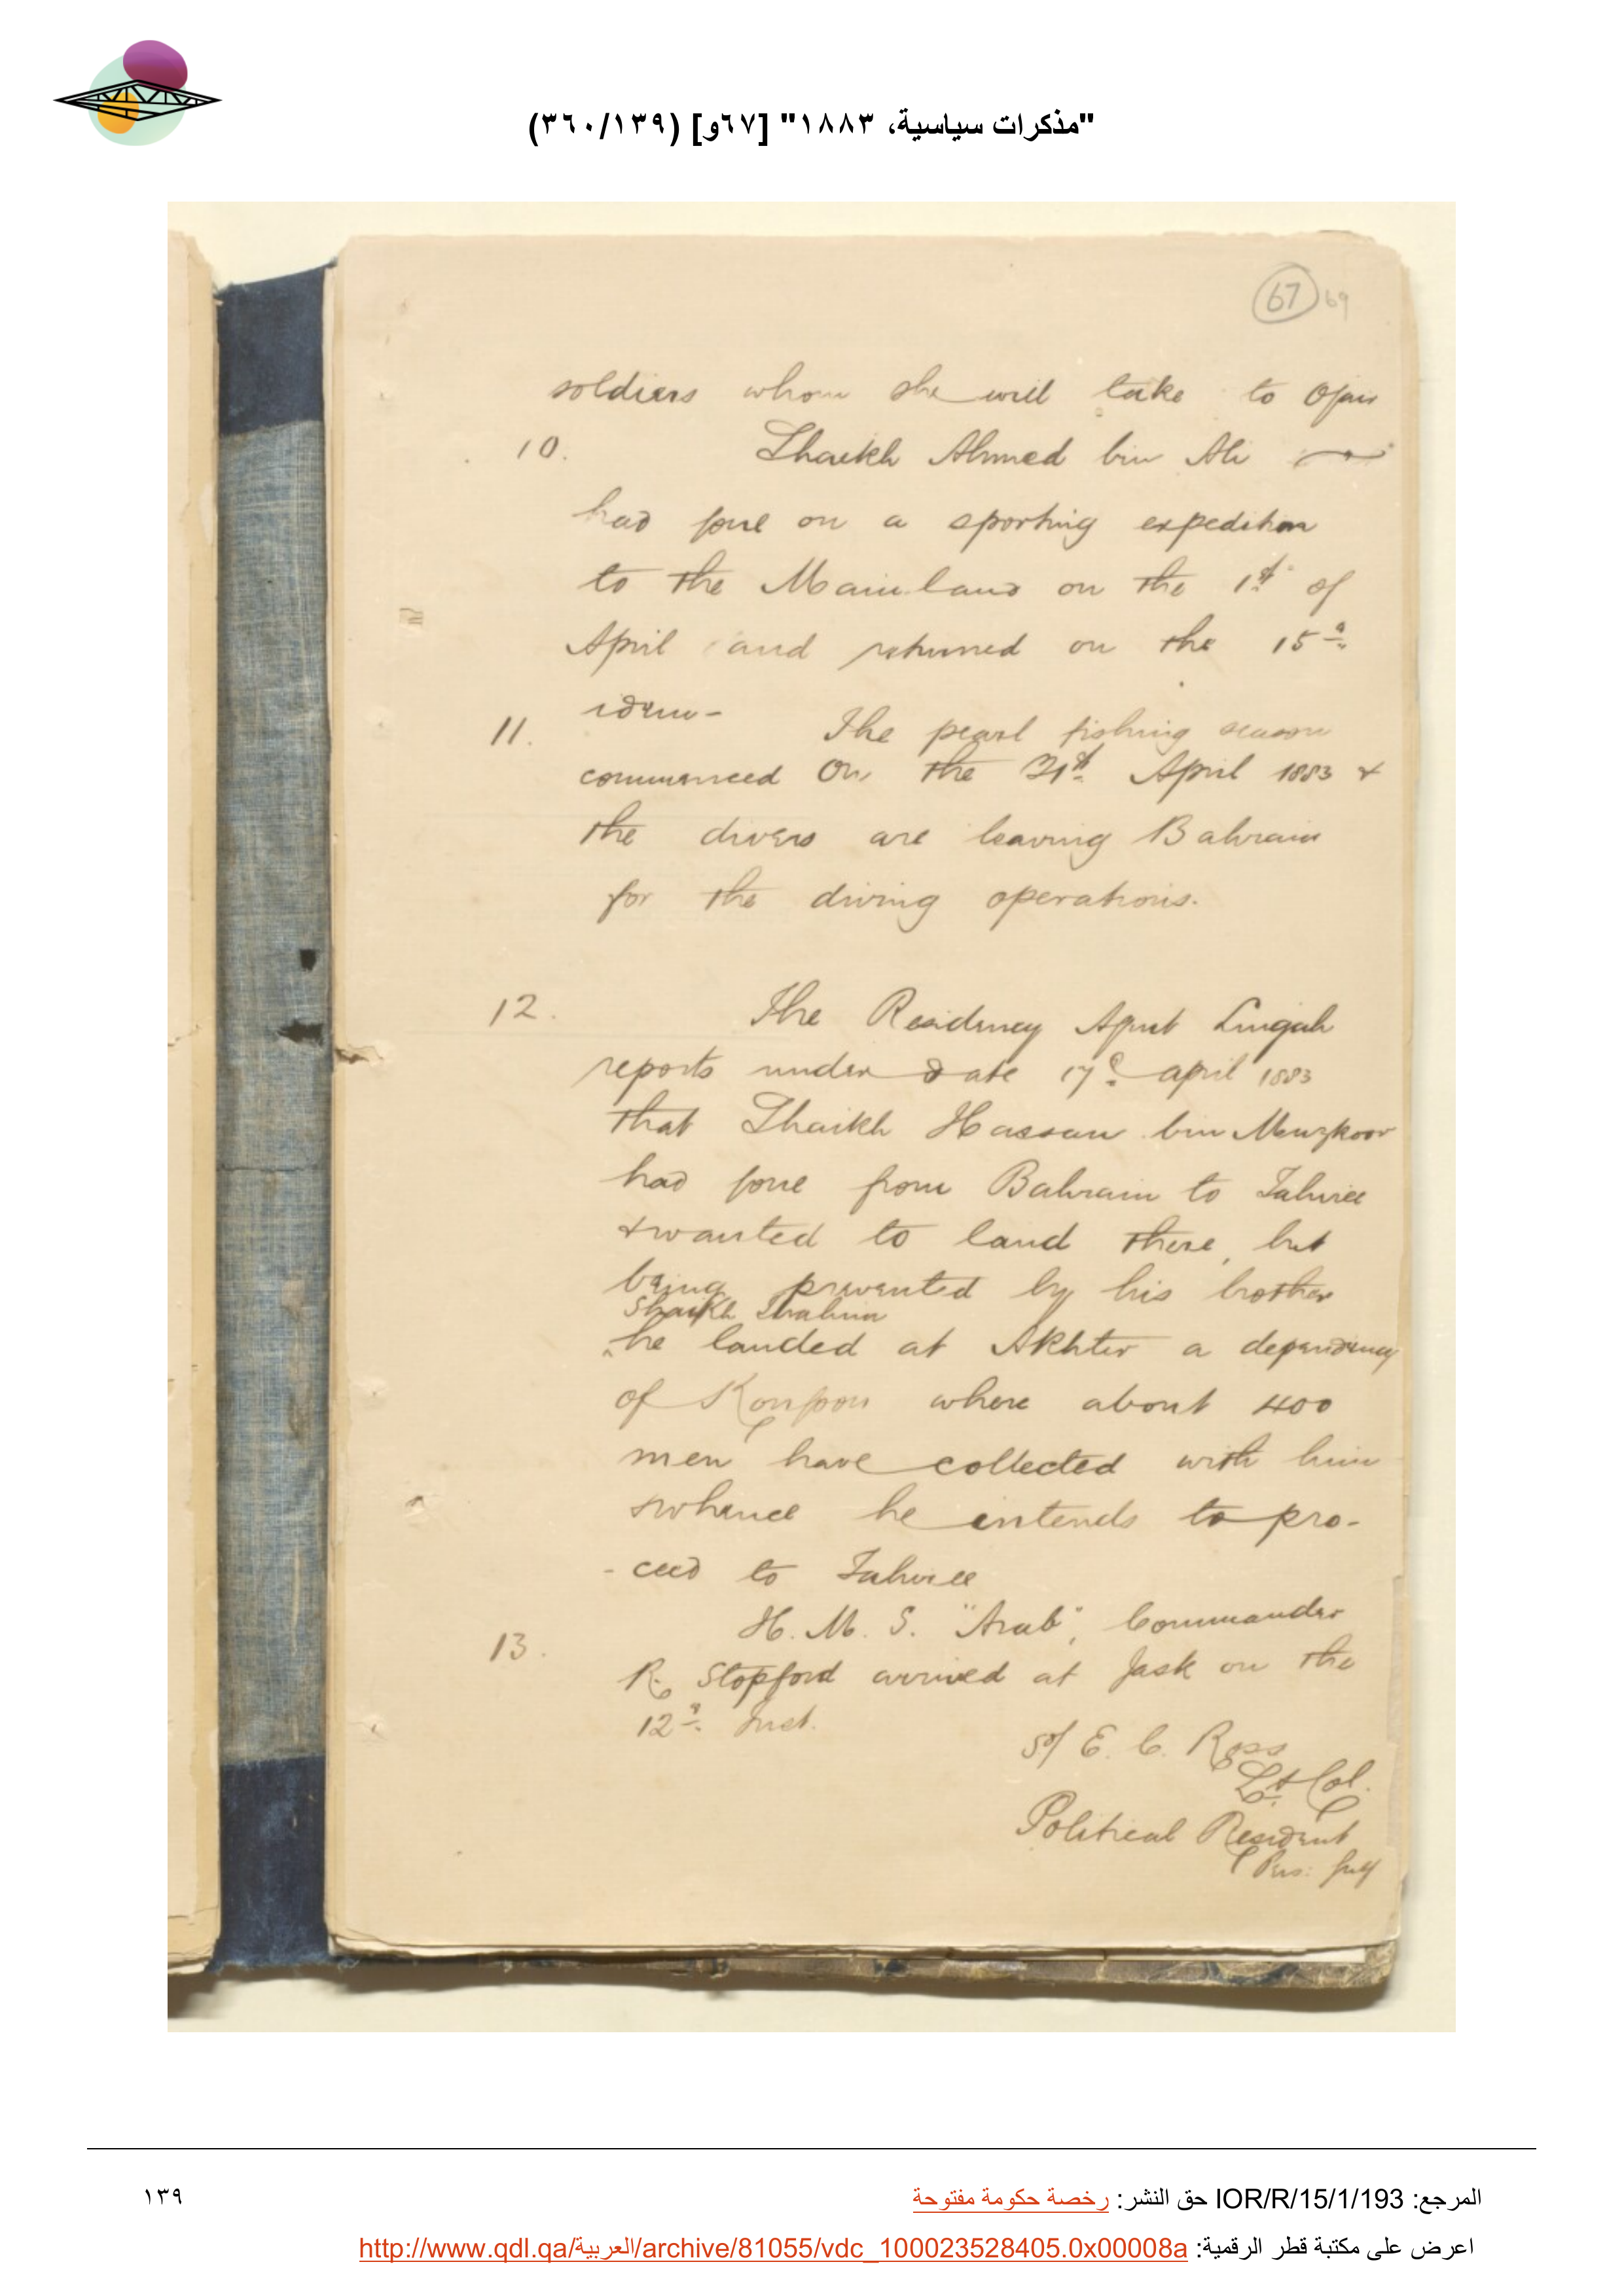 "مذكرات سياسية، ١٨٨٣" [٦٧و] (٣٦٠/١٣٩)
67 69
soldiers whom she will take to Ojair
10. Shaikh Ahmed bin Ali
had gone on a sporting expedition
to the Mainland on the 1st of
April and returned on the 15th
idem-
11. The pearl fishing season
commenced On the 21st April 1883 &
the divers are leaving Bahrain
for the diving operations.
12. The Residency Agent Lingah
reports under date 17th april 1883
that Shaikh Hassan bin Muzkoor
had gone from Bahrain to Tahiree
& wanted to land there, but
being prevented by his brother
Shaikh
he landed at Akhter a dependency
of Kongoon where about 400
men have collected with him
& whence he intends to pro-
-ceed to Tahiree
13. H. M. S. "Arab", Commander
R. Stopford arrived at Jask on the
12th Inst.
Sd/ E. C. Ross
Lt Col.
Political Resident
Pers: Gulf
المرجع: IOR/R/15/1/193 حق النشر: رخصة حكومة مفتوحة
١٣٩
اعرض على مكتبة قطر الرقمية: http://www.qdl.qa/العربية/archive/81055/vdc_100023528405.0x00008a